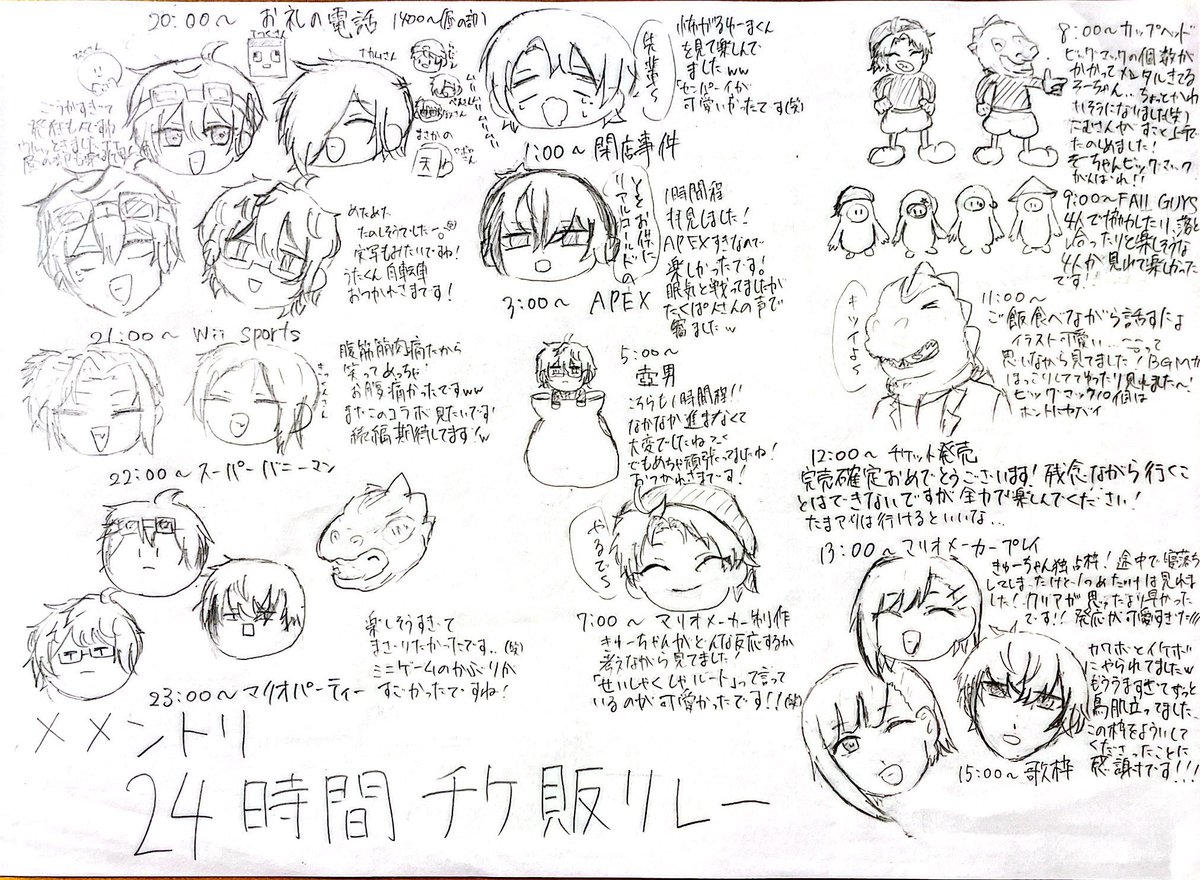 20:00～ お礼の電話 1400～(昼の部)
さかいさん
まさかの
めためた
たのしそうでした～
実写もみたいですね!
うたくん自転車
おつかれさまです!
21:00～ Wii Sports
腹筋筋肉痛だから
笑ってめっちゃ
お腹痛かったですww
またこのコラボ見たいです!
続編期待してます!w
22:00～ スーパーバニーマン
楽しそうすぎて
まざりたかったです..(笑)
ミニゲームのかぶりが
すごかったですね!
23:00～マリオパーティー
メメントリ
24時間チケ販リレー
先輩～
怖がるゆーまくん
を見て楽しんで
ましたww
センパーイが
可愛いかったです(笑)
1:00～ 閉店事件
とお供に
リアルゴールドの
1時間程
拝見しました!
APEXすきなので
楽しかったです。
眠気と戦ってましたが
たくぱんさんの声で
寝ましたw
3:00～ APEX
5:00～
壺男
こちらも1時間程!!
なかなか進まなくて
大変でしたね～
でもめちゃ頑張ってましたね!
おつかれさまです!
やるで～
7:00～ マリオメーカー制作
きゅーちゃんがどんな反応するか
考えながら見てました!
「せいしゃくしゃルート」って言って
いるのが可愛かったです!!(笑)
8:00～カップヘッド
ビックマックの個数が
かかってメンタルきてる
そーちゃん..ちょっとかわ
いそうになりました(笑)
たむさんがすごく上手で
たのしめました!
そーちゃんビックマック
がんばれ!!
9:00～FAll GUYS
4人で協力したり、落と
し合ったりと楽しそうな
4人が見れて楽しかった
です!
11:00～
ご飯食べながら話すだよ
キツイよ～
イラスト可愛い...～って
思いながら見てました!BGMが
ほっこりしてて
ビックマック10個は
ホントにヤバイ
12:00～ チケット発売
完売確定おめでとうございます!残念ながら行くこ
とはできないですが全力で楽しんでください!
たまアリは行けるといいな...
13:00～マリオメーカープレイ
きゅーちゃん独占枠!途中で寝落ち
してしまったけど1つめだけは見れま
した!クリアが思ったより早かった
です!!発応が可愛すぎた///
カワボとイケボ
にやられてましたw
もううますぎてずっと
鳥肌立ってました
この枠をよういして
くださったことに
感謝です!!!
15:00～歌枠